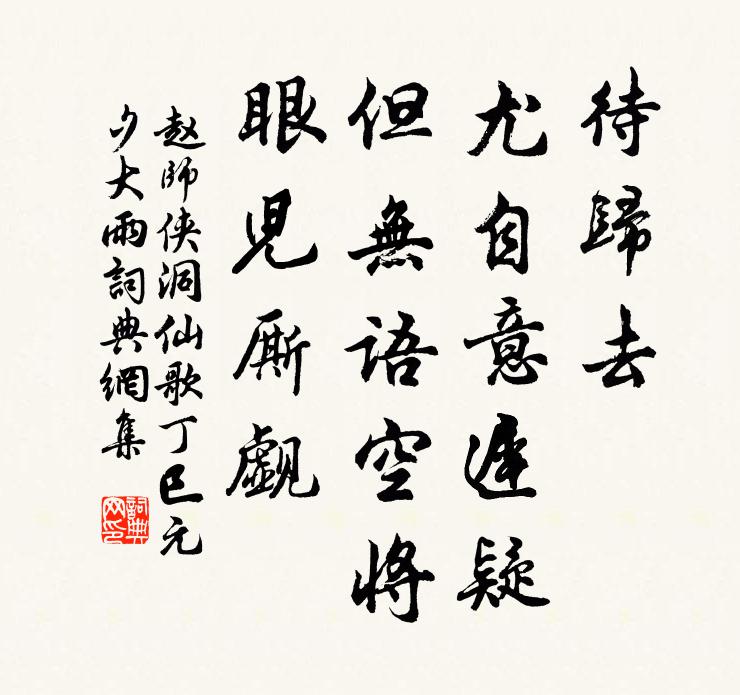 待歸去
尤自意遲疑
但無語空將
眼兒厮覷
赵師俠洞仙歌丁巳元
夕大雨詞典網集
詞典網印